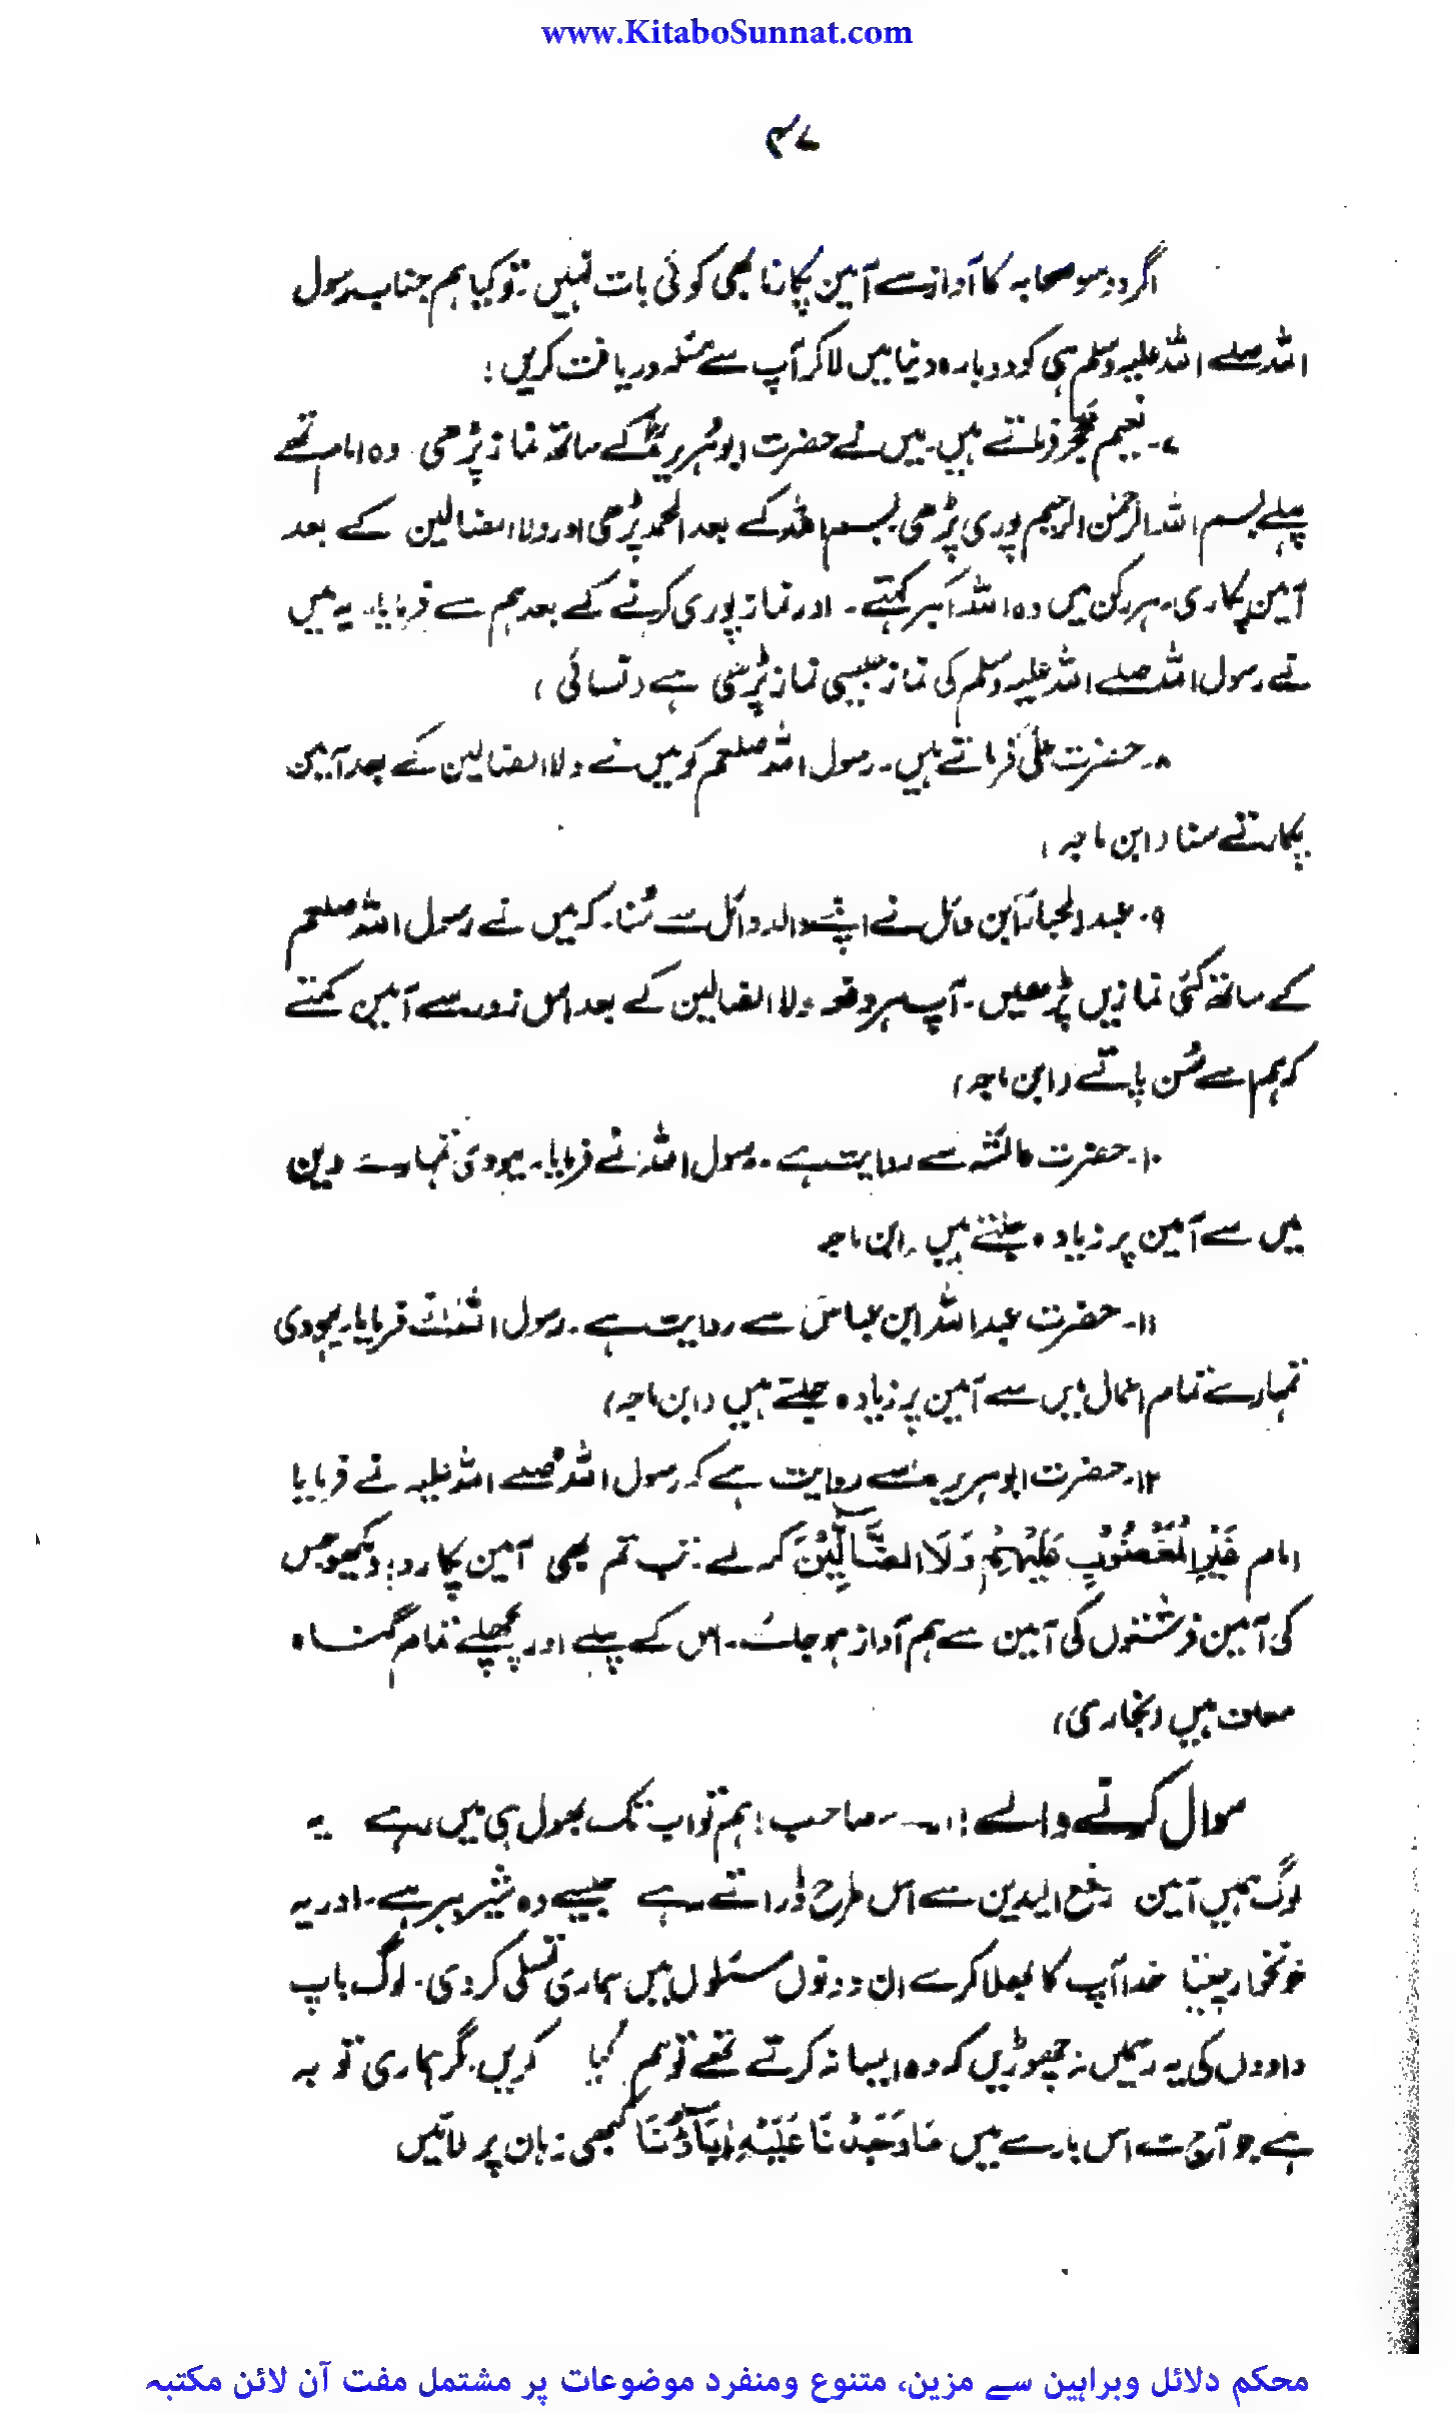 www.KitaboSunnat.com
۴۷
اگر دو سو صحابہ کا آواز سے آمین پکارنا بھی کوئی بات نہیں۔ تو کیا ہم جناب رسول
اللہ صلے اللہ علیہ وسلم ہی کو دوبارہ دنیا میں لا کر آپ سے مسئلہ دریافت کریں؛
۷۔ نعیم مجمر فرماتے ہیں۔ میں نے حضرت ابوہریرہؓ کے ساتھ نماز پڑھی۔ وہ امام تھے
پہلے بسم اللہ الرحمٰن الرحیم پوری پڑھی بسم اللہ کے بعد الحمد پڑھی اور ولا الضالین کے بعد
آمین پکاری۔ ہر رکن میں وہ اللہ اکبر کہتے۔ اور نماز پوری کرنے کے بعد ہم سے فرمایا۔ یہ میں
نے رسول اللہ صلے اللہ علیہ وسلم کی نماز جیسی نماز پڑھی ہے (نسائی)
۸۔ حضرت علیؓ فرماتے ہیں۔ رسول اللہ صلعم کو میں نے ولا الضالین کے بعد آمین
پکارتے سنا (ابن ماجہ)
۹۔ عبد الجبار ابن وائل نے اپنے والد وائل سے سُنا۔ کہ میں نے رسول اللہ صلعم
کے ساتھ کئی نمازیں پڑھیں۔ آپ ہر دفعہ ولا الضالین کے بعد اس زور سے آمین کہتے
کہ ہم اسے سُن پاتے (ابن ماجہ)
۱۰۔ حضرت عائشہ سے روایت ہے۔ رسول اللہ نے فرمایا۔ یہودی تمہارے دین
میں سے آمین پر زیادہ جلتے ہیں (ابن ماجہ
۱۱۔ حضرت عبد اللہ ابن عباس سے روایت ہے۔ رسول اللہ نے فرمایا۔ یہودی
تمہارے تمام اعمال میں سے آمین پر زیادہ جلتے ہیں (ابن ماجہ)
۱۲۔ حضرت ابو ہریرہ سے روایت ہے کہ رسول اللہ صلے اللہ علیہ نے فرمایا
امام غَیْرِ الْمَغْضُوْبِ عَلَیْہِمْ وَلَا الضَّآلِّیْنَ کہ لے: تب تم بھی آمین پکارو: دیکھو جس
کی آمین فرشتوں کی آمین سے ہم آواز ہو جائے۔ اس کے پہلے اور پچھلے تمام گناہ
معاف ہیں (بخاری)
سوال کرنے والے: صاحب! ہم تو اب تک بھول ہی میں رہے یہ
لوگ ہمیں آمین رفع الیدین سے اس طرح ڈراتے رہے جیسے وہ شیر ببر ہے۔ اور یہ
خونخوار چیتا خدا آپ کا بھلا کرے ان دونوں مسئلوں میں ہماری تسلی کر دی۔ لوگ باپ
دادوں کی یہ رسمیں نہ چھوڑیں کہ وہ ایسا نہ کرتے تھے تو ہم کیا کریں۔ مگر ہماری توبہ
ہے جو آج سے اس بارے میں مَا وَجَدْنَا عَلَیْہِ اٰبَآءَنَا کبھی زبان پر لائیں
محکم دلائل وبراہین سے مزین، متنوع ومنفرد موضوعات پر مشتمل مفت آن لائن مکتبہ